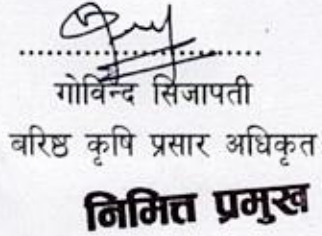 गोविन्द सिजापती
बरिष्ठ कृषि प्रसार अधिकृत
निमित्त प्रमुख